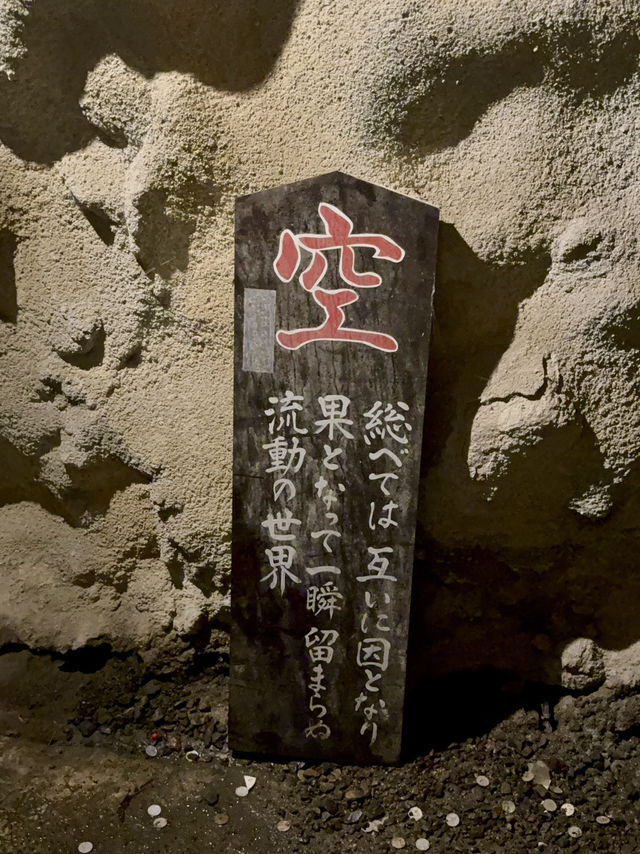 空
総べては互いに因となり
果となって一瞬留まらぬ
流動の世界